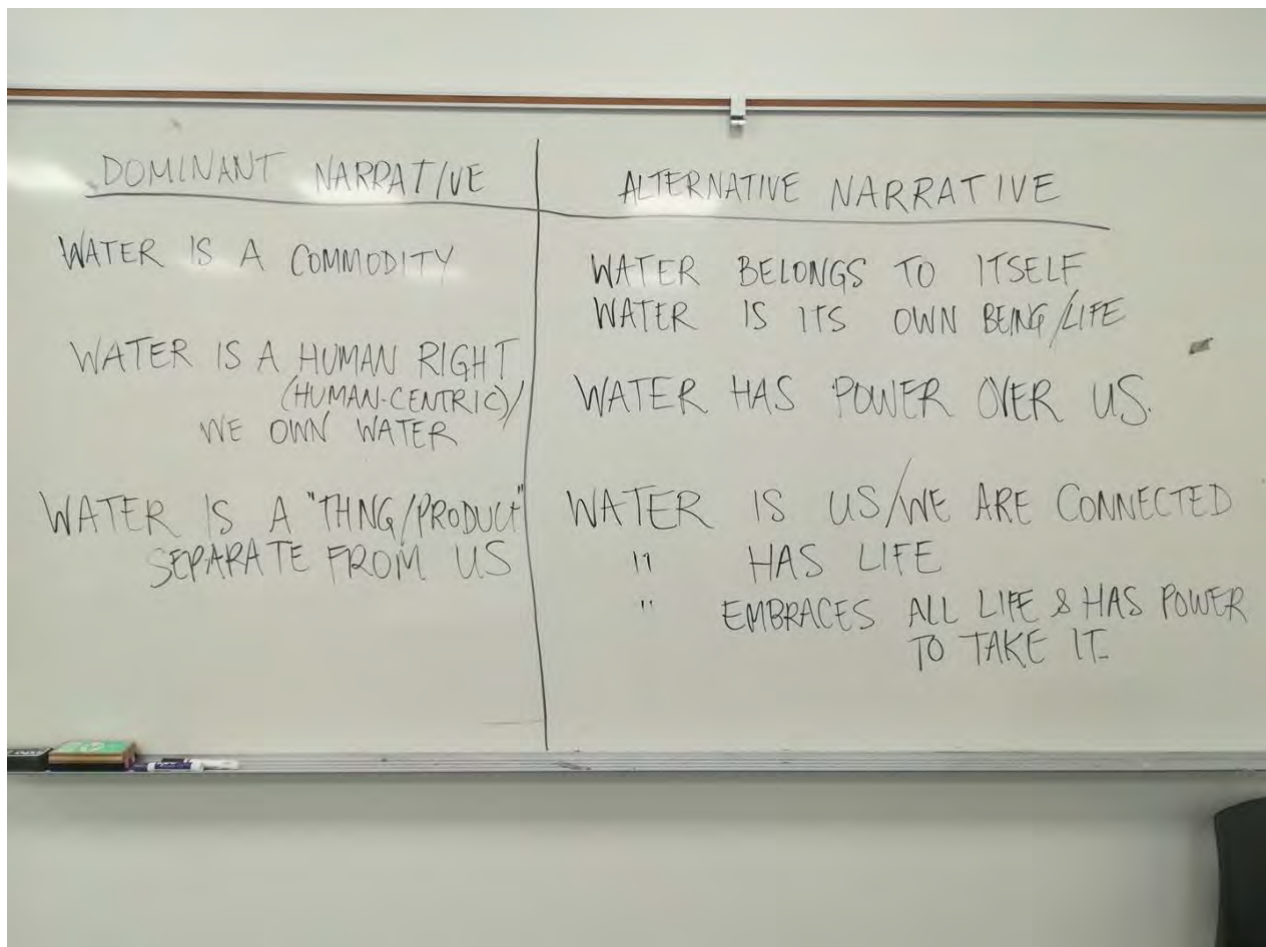 DOMINANT NARRATIVE
WATER IS A COMMODITY
WATER IS A HUMAN RIGHT
(HUMAN-CENTRIC)/
WE OWN WATER
WATER IS A "THNG/PRODUCT"
SEPARATE FROM US
ALTERNATIVE NARRATIVE
WATER BELONGS TO ITSELF
WATER IS ITS OWN BEING/LIFE
WATER HAS POWER OVER US.
WATER IS US/WE ARE CONNECTED
" HAS LIFE
" EMBRACES ALL LIFE & HAS POWER
TO TAKE IT.